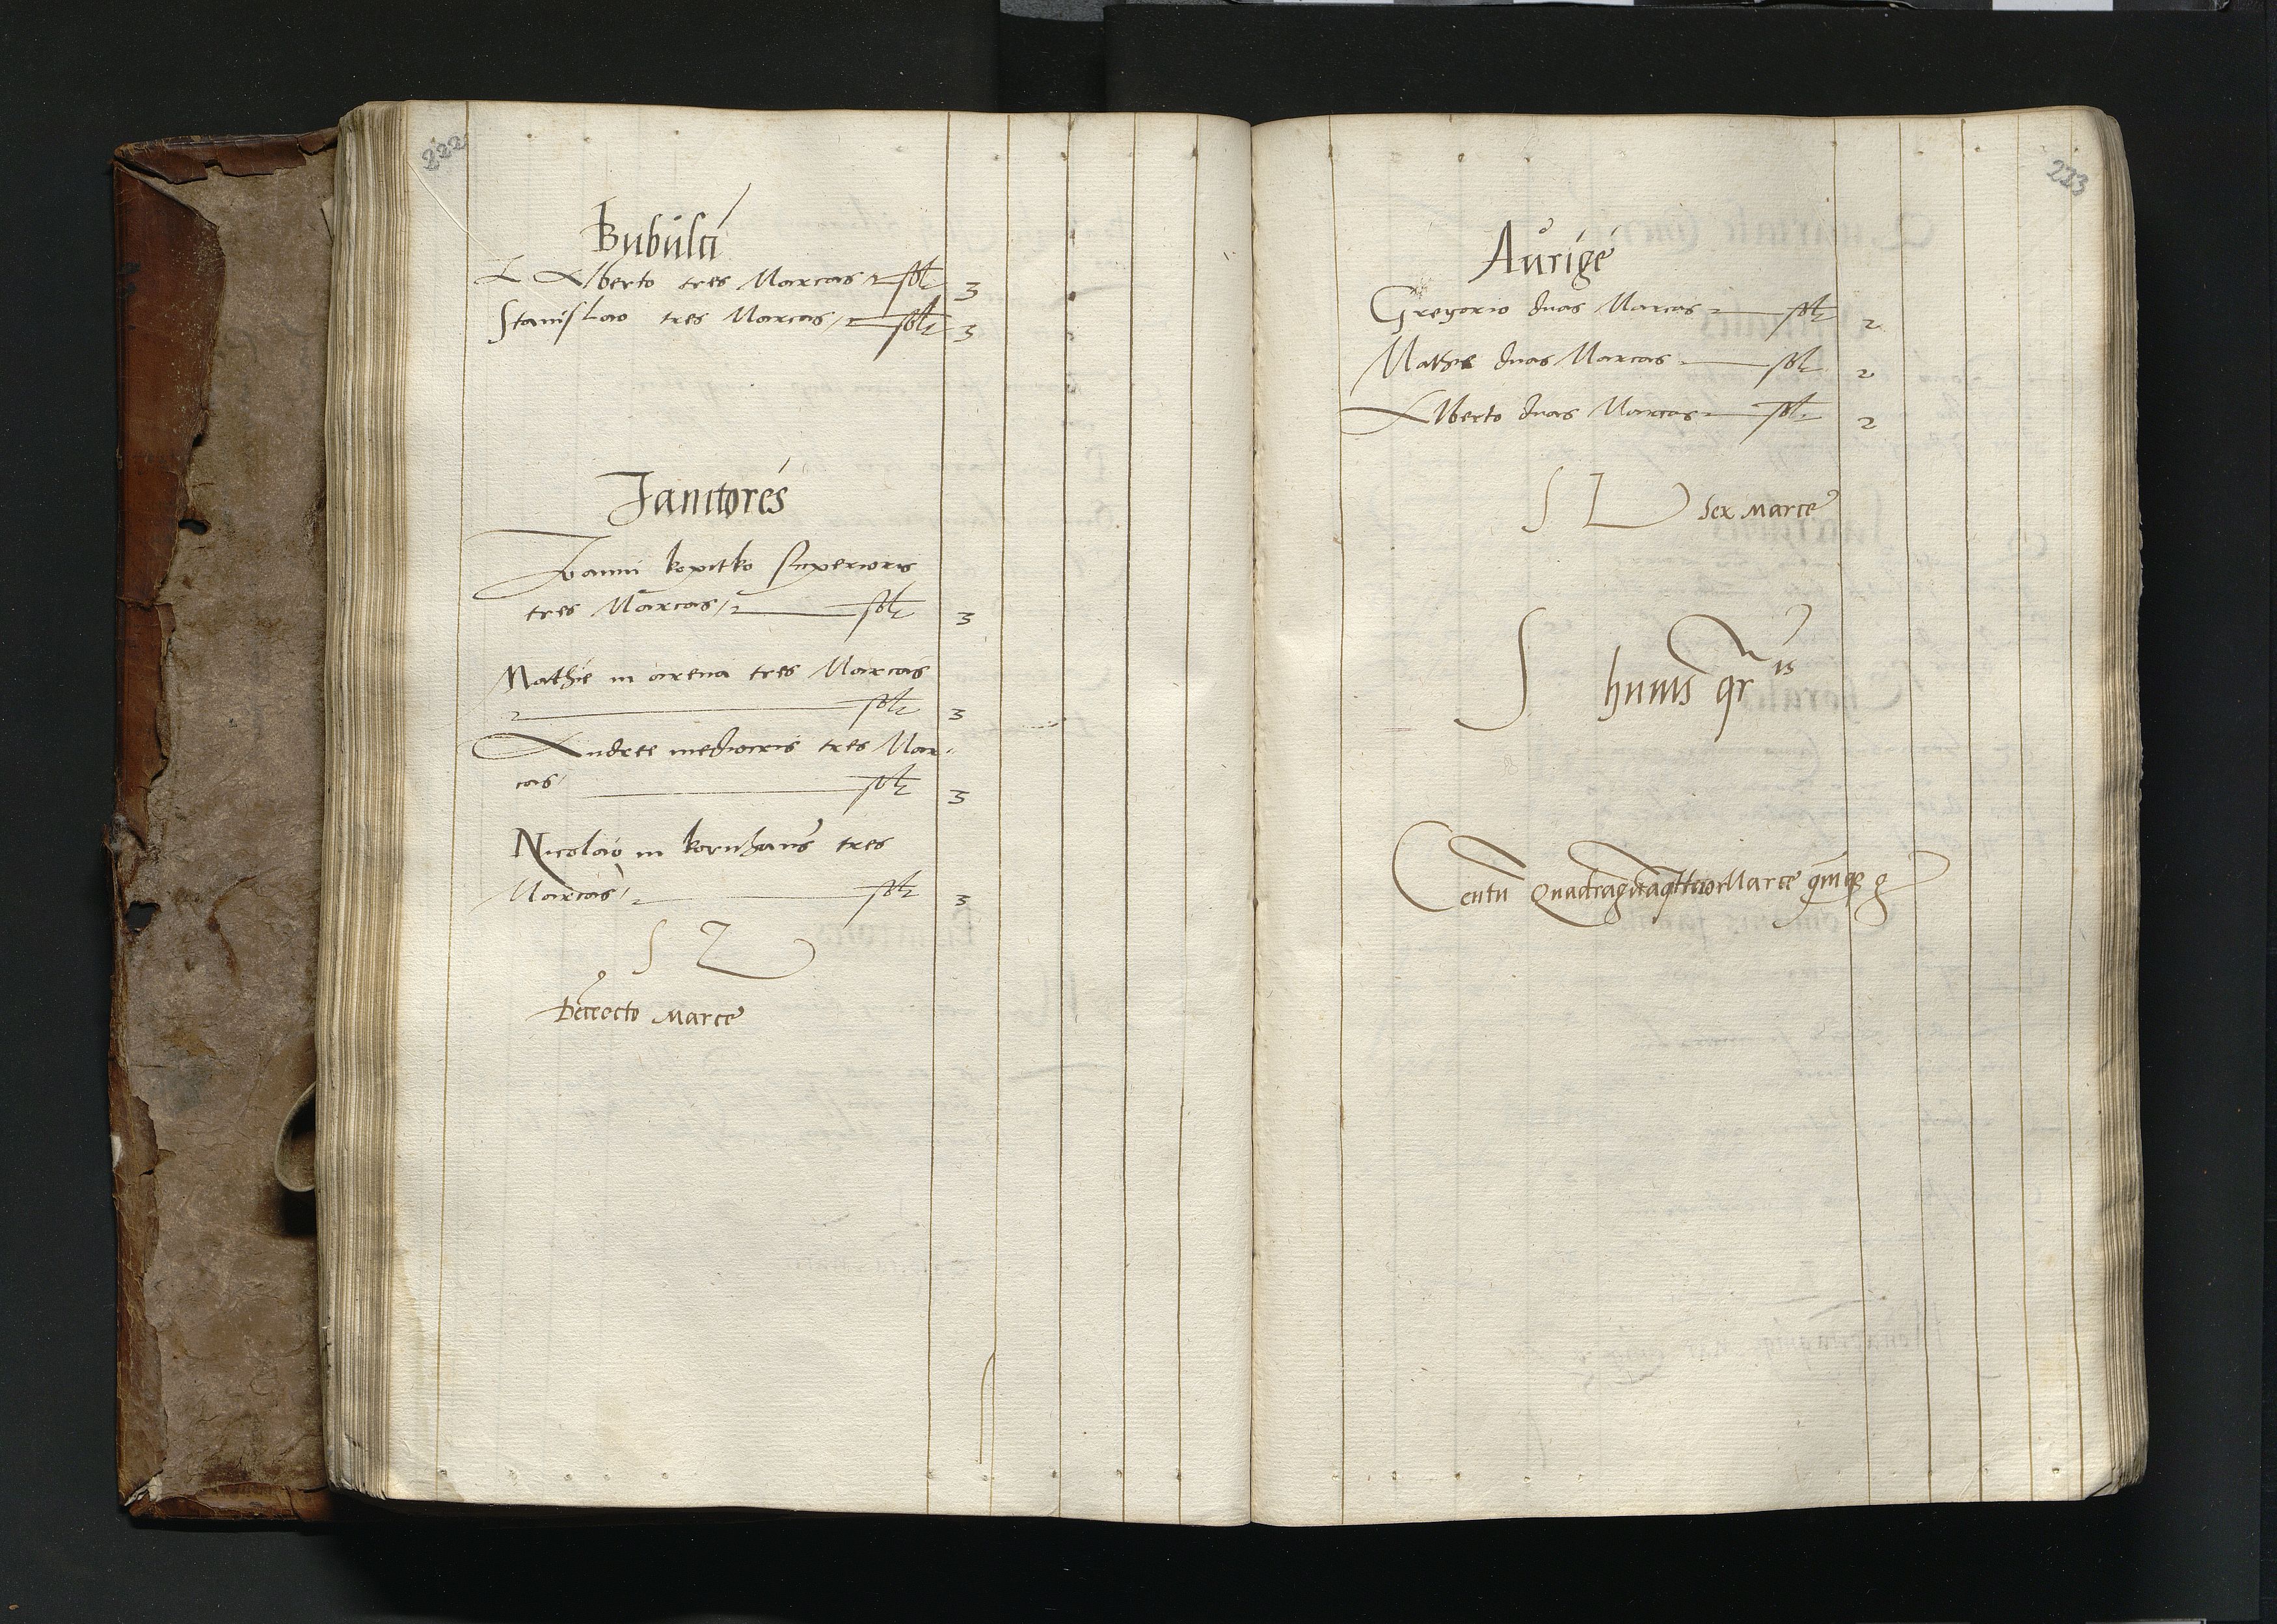 222
Bubulci
Alberto tres Marcas solt 3
Stanislao tres Marcas solt 3
Janitores
Joanni kopitko Superioris
tres Marcas solt 3
Mathie in arena tres Marcas
solt 3
Andree mediocris tres Mar
cas solt 3
Nicolao in kornhaus tres
Marcas solt 3
S L
Deceocto Marce
223
Aurige
Gregorio duas Marcas solt 2
Mathie duas Marcas solt 2
Alberto duas Marcas solt 2
S L Sex Marce
S huius qr is
Centu Quadragintaqttuor Marce quiqz g